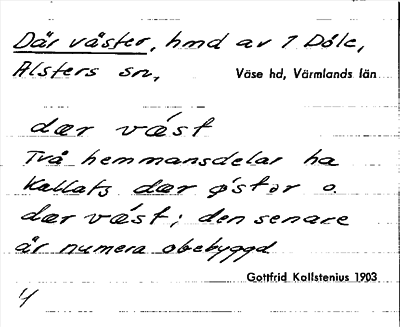 Där väster, hmd av 1 Döle,
Alsters sn, Väse hd, Värmlands län
dær væ´st
Två hemmansdelar ha
kallats dær ø´stər o.
dær væ´st; den senare
är numera obebyggd
Gottfrid Kallstenius 1903